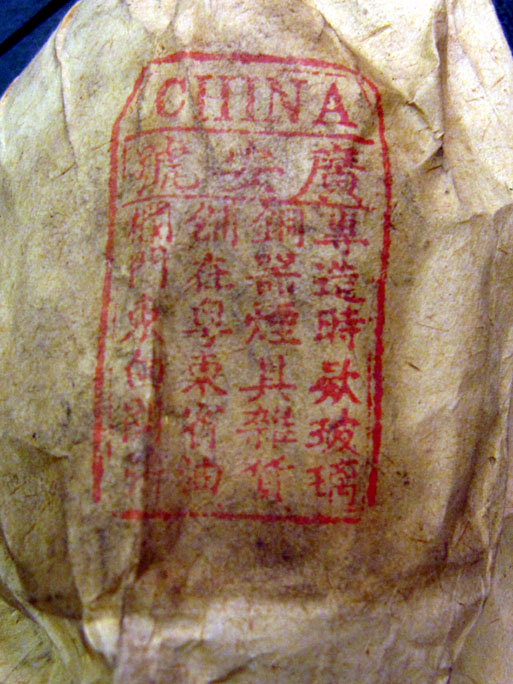 CHINA
廣安號
專造時款玻璃
銅器煙具雜貨
舖在粤東省油
欄門東向